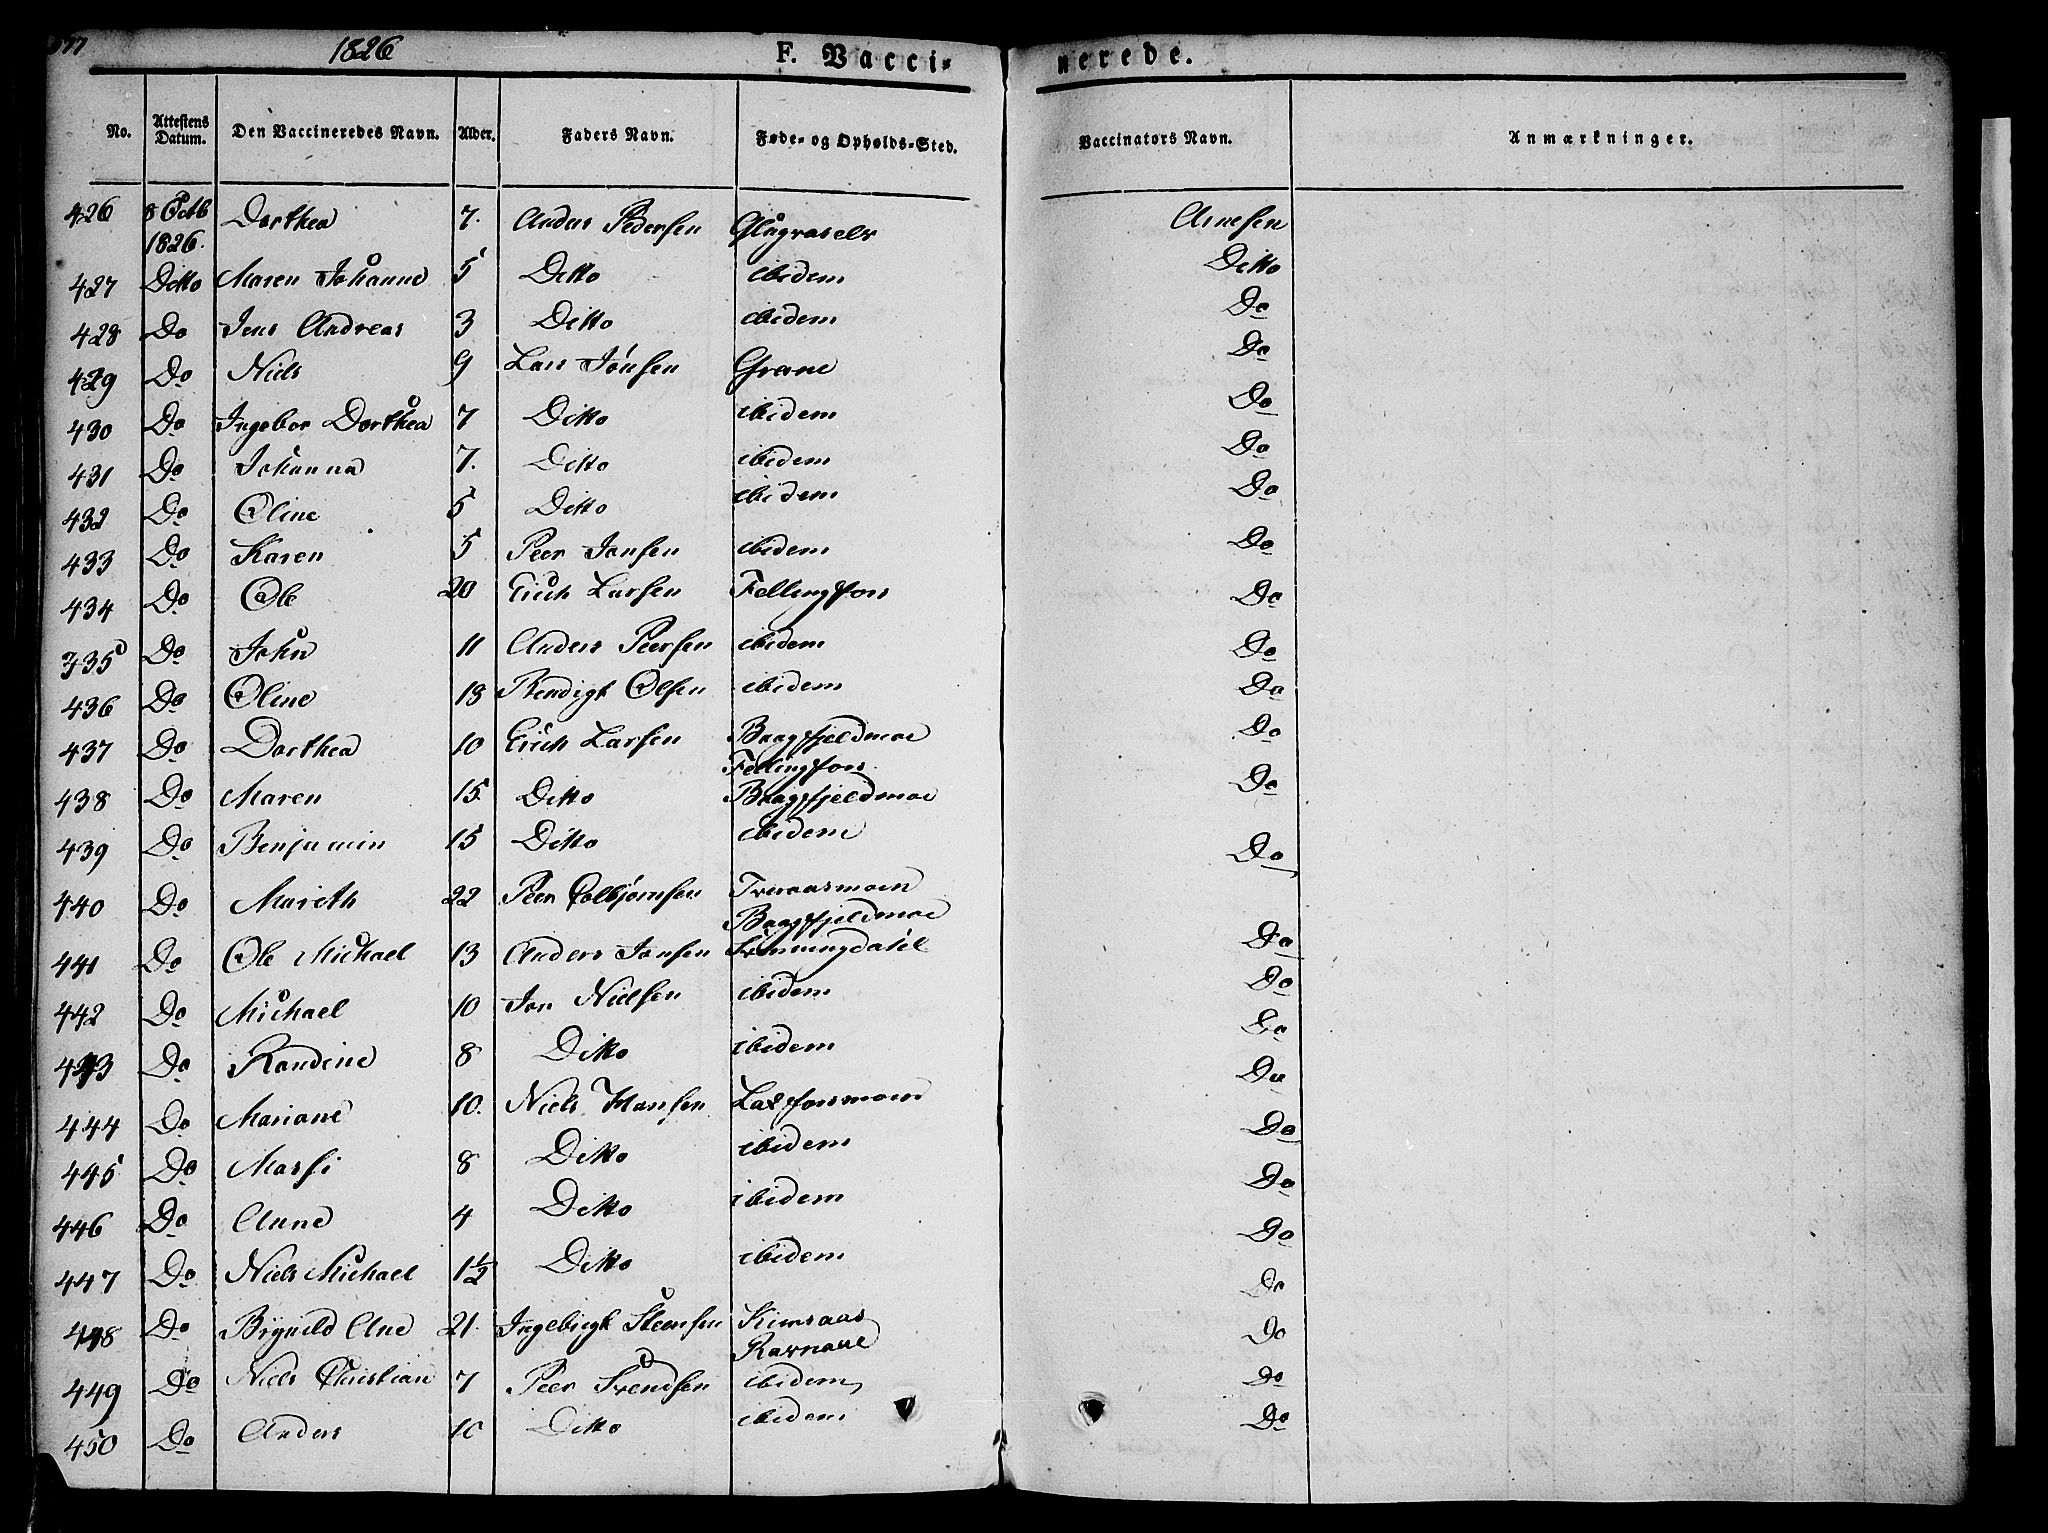 1826 F. Vacci- nerede.
No. Attestens Datum. Den Vaccineredes Navn. Alder. Faders Navn. Føde- og Opholds-Sted. Vaccinators Navn. Anmærkninger.
426 8 Octb 1826. Dorthea 7. Anders Pedersen Arnesen
427 Ditto Maren Johanne 5 Ditto ibidem Ditto
428 Do Jens Andreas 3 Ditto ibidem Do
429 Do Niels 9 Lars Jönsen Grane Do
430 Do Ingebor Dorthea 7 Ditto ibidem Do
431 Do Johanna 7. Ditto ibidem Do
432 Do Oline 5 Ditto ibidem Do
433 Do Karen 5 Peer Jonsen ibidem Do
434 Do Ole 20 Erich Larsen Fellingfors Do
435 Do John 11 Anders Peersen ibidem Do
436 Do Oline 18 Bendigt Olsen ibidem Do
437 Do Dorthea 10 Erich Larsen Baagfjeldmoe Do
Fellingfors
438 Do Maren 15 Ditto Baagfjeldmoe Do
439 Do Benjamin 15 Ditto ibidem Do
440 Do Mareth 22 Peer Colbjørnsen Tveraasmoen
Baagfjeldmoe
441 Do Ole Michael 13 Anders Jonsen Do
442 Do Michael 10 Jon Nielsen ibidem Do
443 Do Randine 8 Ditto ibidem Do
444 Do Mariane 10. Niels Hansen Laxforsmoen Do
445 Do Marsi 8 Ditto ibidem Do
446 Do Anne 4 Ditto ibidem Do
447 Do Niels Michael 1½ Ditto ibidem Do
448 Do Brynild Ane 21. Ingebrigt Steensen Kimraas Do
449 Do Niels Christian 7 Peer Svendsen ibidem Do
450 Do Anders 10 Ditto ibidem Do